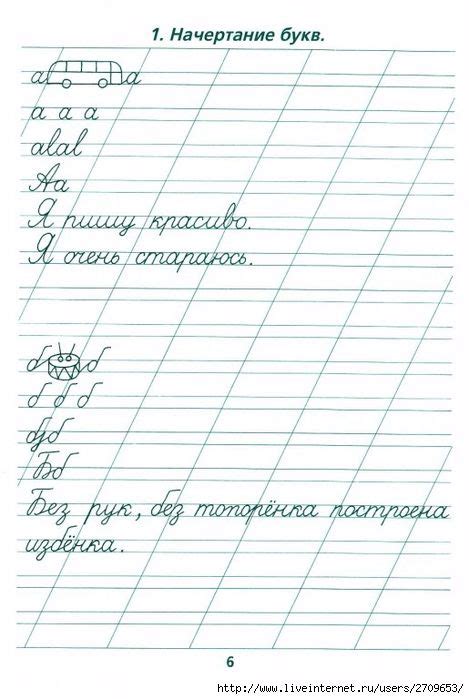 1. Начертание букв.
а а
а а а
аlаl
Аа
Я пишу красиво.
Я очень стараюсь.
б б
б б б
буб
Бб
Без рук, без топорёнка построена
избёнка.
6
http://www.liveinternet.ru/users/2709653/